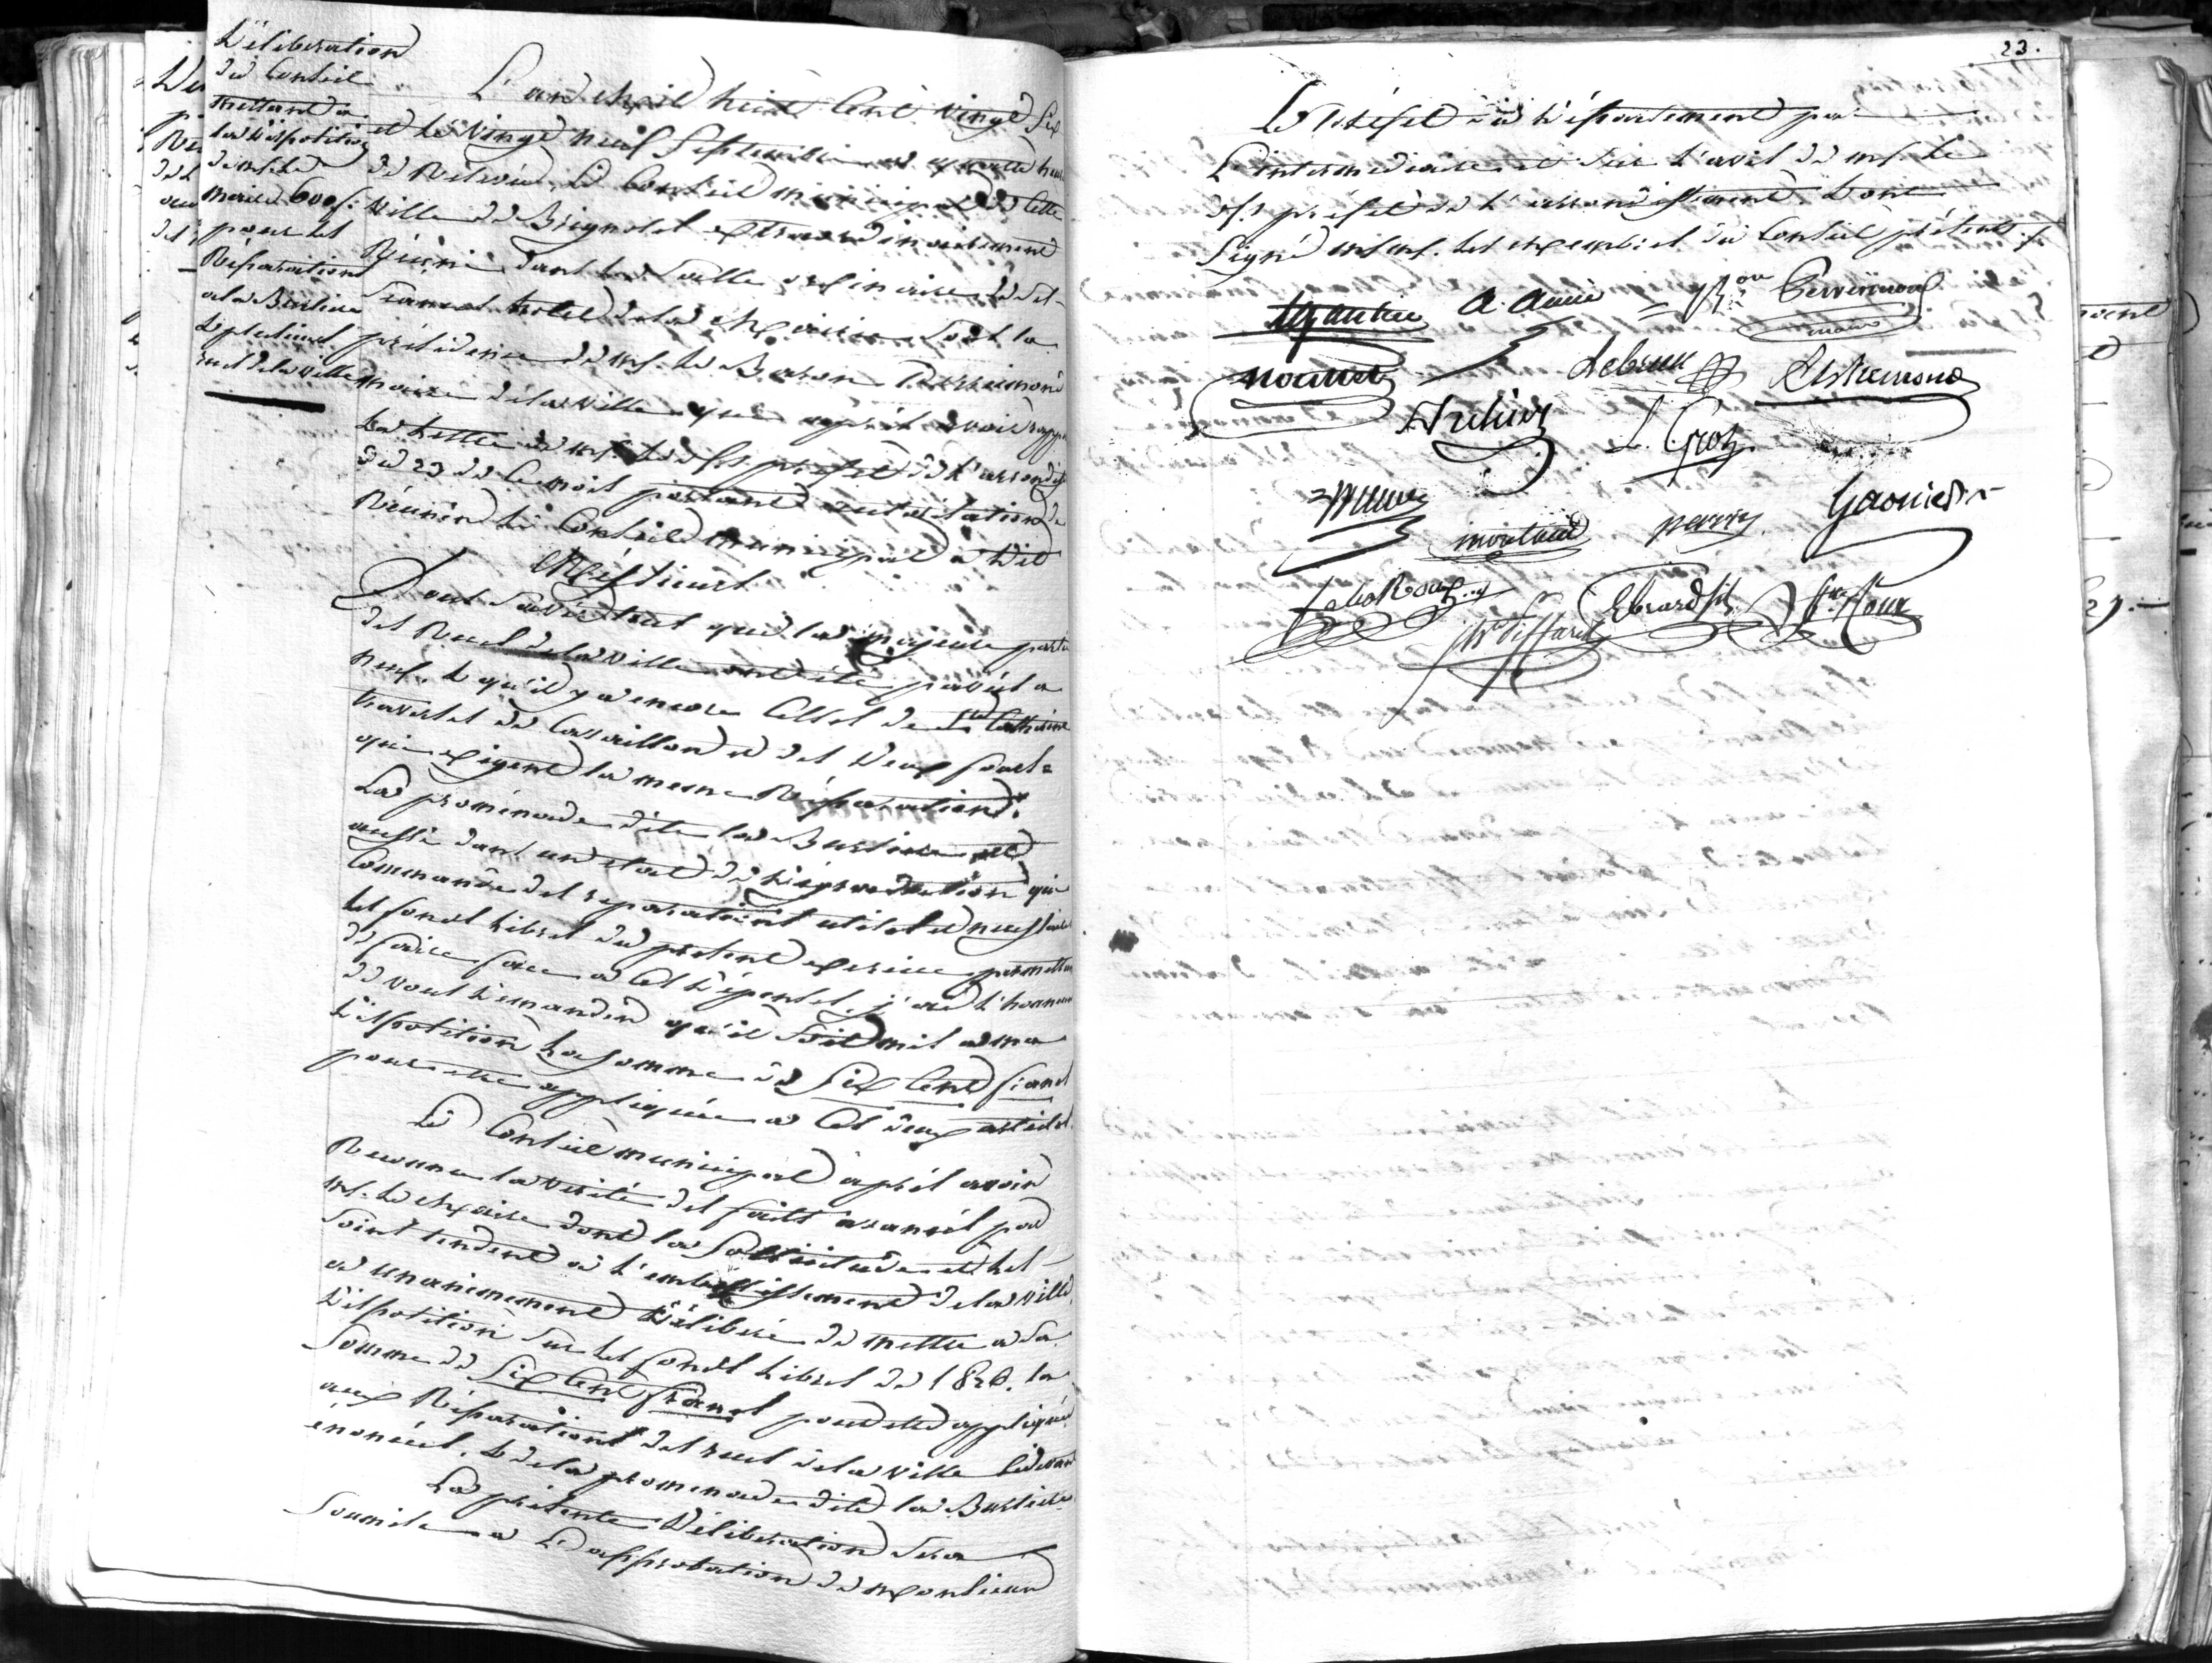 Déliberation
du Conseil
mettant a
la disposition
de mr. le
maire 600 f.
pour les
Réparations
a la Burliere
& plusieurs
rues de la ville
L'an mil huit Cent vingt Six
et le vingt neuf Septembre a quatre heures
de Relevée, Le Conseil municipal de Cette
ville de Brignoles extraordinairement
Réuni dans la Salle ordinaire de Ses
Seances hotel de la mairie Sous la
présidence de mr. le Baron Perrimond
maire de la ville qui après avoir rappellé
La Lettre de mr. le Ss. prefet de l'arrondist.
du 23 de Ce mois portant autorisation de
Réunir Le Conseil municipal a dit
Messieurs
Vous Savés tous que la majeure partie
des Rues de la ville ont été pavées a
neuf, & qu'il y a encore Celles de Ste Catherine
traverses de Cavaillon et des deux fours
qui exigent la meme Réparation.
La promenade dite la Burliere est
aussi dans un etat de dégradation qui
Commande des reparations utiles et necessaires
les fonds Libres du present exercice permettent
de faire face a Ces Dépenses. j'ai L'honneur
de vous Demander qu'il Soit mis a ma
Disposition La Somme de Six Cent francs
pour etre appliquée a Ces deux articles.
Le Conseil municipal après avoir
Reconnu la verité des faits avancés par
mr. Le maire dont la Sollicitude et les
Soins tendent a L'embellissement de la ville,
a unanimement Déliberé de mettre a Sa
Disposition Sur les fonds Libres de 1826. la
Somme de Six Cent francs pour etre appliquée
aux Réparations des rues de la ville Cidevant
énoncées, & de la promenade dite la Burliere.
La présente Déliberation Sera
Soumise a L'approbation de monsieur
23.
Le Préfet du Département par
L'intermediaire et Sur L'avis de mr. Le
Ss. prefet de L'arrondissement. Et ont
Signé mrs. Les membres du Conseil présents
A. Amic
Bon Perrimond
maire
Lebrun
L. Gros
montaud
perry
Garnier
Ebrard fils
fx. Roux